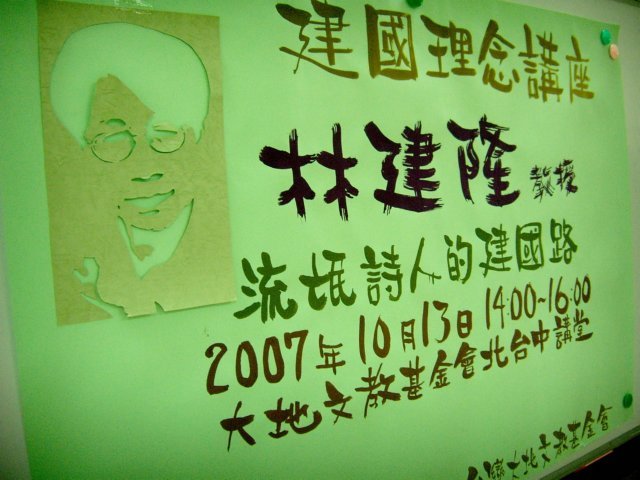 建國理念講座
林建隆 教授
流氓詩人的建國路
2007年10月13日 14:00~16:00
大地文教基金會北台中講堂
台灣大地文教基金會